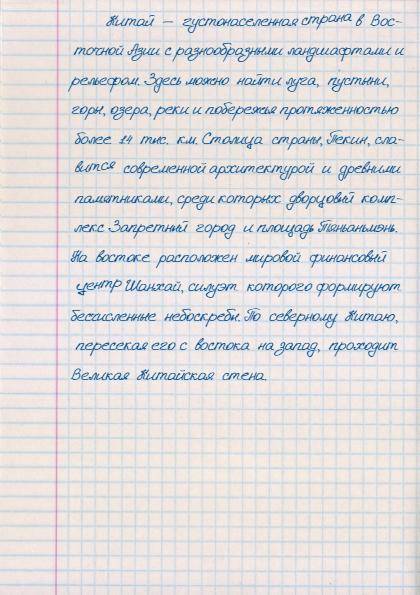 Китай — густонаселенная страна в Вос-
точной Азии с разнообразными ландшафтами и
рельефом. Здесь можно найти луга, пустыни,
горы, озера, реки и побережья протяженностью
более 14 тыс. км. Столица страны, Пекин, сла-
вится современной архитектурой и древними
памятниками, среди которых дворцовый комп-
лекс Запретный город и площадь Тяньаньмэнь.
На востоке расположен мировой финансовый
центр Шанхай, силуэт которого формируют
бесчисленные небоскребы. По северному Китаю,
пересекая его с востока на запад, проходит
Великая Китайская стена.